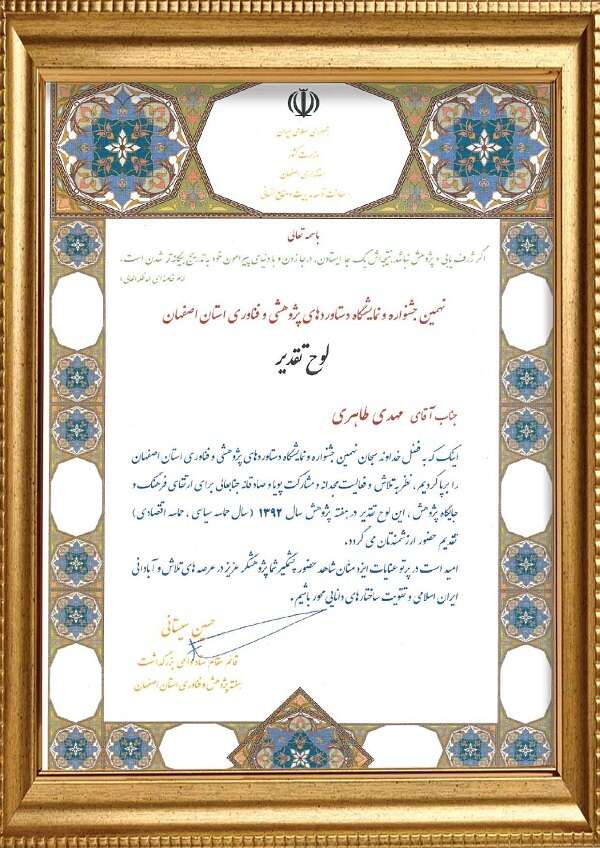 جمهوری اسلامی ایران
وزارت کشور
استانداری اصفهان
معاونت توسعه مدیریت و منابع انسانی
باسمه تعالی
اگر ژرف یابی و پژوهش نباشد نتیجه‌اش یک جا ایستادن، در جا زدن و با دنیای پیرامون خود به تدریج بیگانه تر شدن است.
نهمین جشنواره و نمایشگاه دستاوردهای پژوهشی و فناوری استان اصفهان
لوح تقدیر
جناب آقای مهدی طاهری
اینک که به فضل خداوند سبحان نهمین جشنواره و نمایشگاه دستاوردهای پژوهشی و فناوری استان اصفهان
را برپا کردیم، نظر به تلاش و فعالیت مجدانه و مشارکت پویا و صادقانه جنابعالی برای ارتقای فرهنگ و
جایگاه پژوهش، این لوح تقدیر در هفته پژوهش سال ۱۳۹۲ (سال حماسه سیاسی، حماسه اقتصادی)
تقدیم حضور ارزشمندتان می گردد.
امید است در پرتو عنایات ایزد منان شاهد حضور چشمگیر شما پژوهشگر عزیز در عرصه های تلاش و آبادانی
ایران اسلامی و تقویت ساختارهای دانایی محور باشیم.
حسین سیستانی
قائم مقام ستاد بزرگداشت
هفته پژوهش و فناوری استان اصفهان